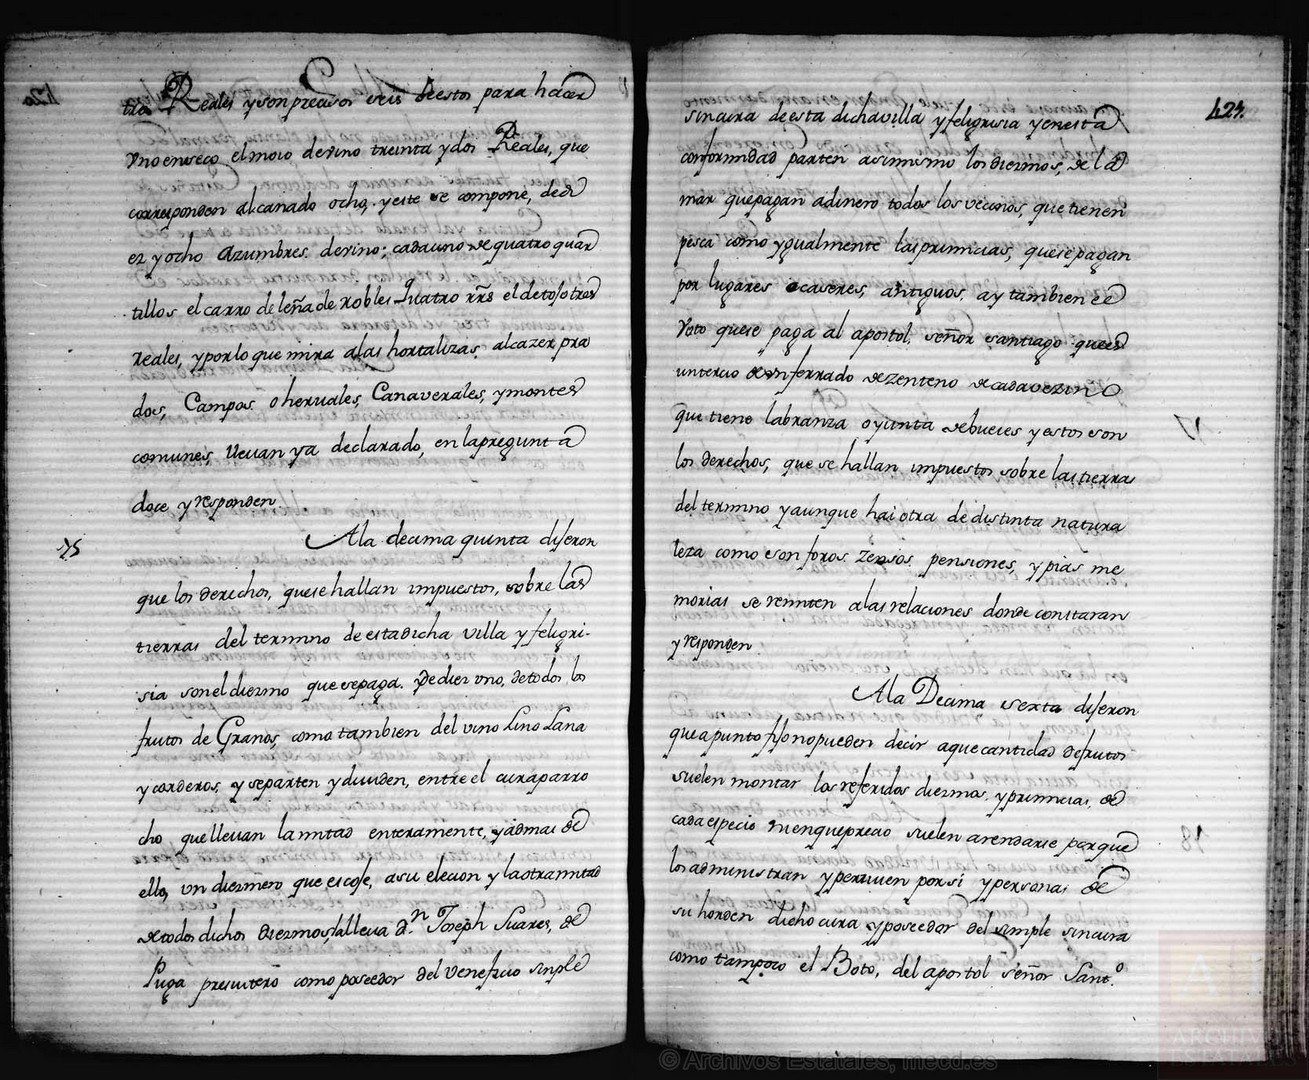 tres Reales y son precisos seis de estos para hacer
Vno en seco el moio de vino treinta y dos Reales, que
corresponden al canado ocho, y este se compone, de di
ez y ocho Azumbres de vino; cada uno de quatro quar
tillos el carro de leña de robles quatro rrs el de tojo tres
Reales, y por lo que mira a las hortalizas, alcazer pra
dos, Campos o hervales, Canaverales, y montes
comunes, llevan ya declarado, en la pregunta
doce y responden
15
A la decima quinta dijeron
que los derechos, que se hallan impuestos, sobre las
tierras del termino de esta dicha villa y feligri-
sia son el diezmo que se paga. De diez vno, de todos los
frutos de Granos, como tambien del vino Lino Lana
y corderos, y se parten y diuiden, entre el cura parro
cho que lleuan la mitad enteramente, y ademas de
ello, vn diezmero que escoje, a su elecion y la otra mitad
de todos dichos diezmos, la lleua dn. Joseph Suares, de
Puga presuitero como poseedor del veneficio simple
424.
sincura de esta dicha villa y feligrisia y en esta
conformidad parten asimismo los diezmos, de la
mar que pagan a dinero todos los vecinos, que tienen
pesca como ygualmente las primicias, que se pagan
por lugares o caseres, antiguos, ay tambien el
Voto que se paga al apostol, señor santiago que es
un tercio de un ferrado de zenteno de cada vezino
que tiene labranza o yunta de bueies y estos son
los derechos, que se hallan impuestos sobre las tierras
del termino y aunque hai otra de distinta natura
leza como son foros zensos, pensiones, y pias me
morias se remiten a las relaciones donde constaran
y responden
A la Decima sexta dijeron
que a punto fijo no pueden decir a que cantidad de frutos
suelen montar los referidos diezmos, y primicias, de
cada especie ni en que precio suelen arendarse porque
los administran y perciuen por si y personas de
su horden dicho cura y poseedor del simple sincura
como tampoco el Boto, del apostol señor Santo
© Archivos Estatales, mecd.es
ARCHIVOS
ESTATALES